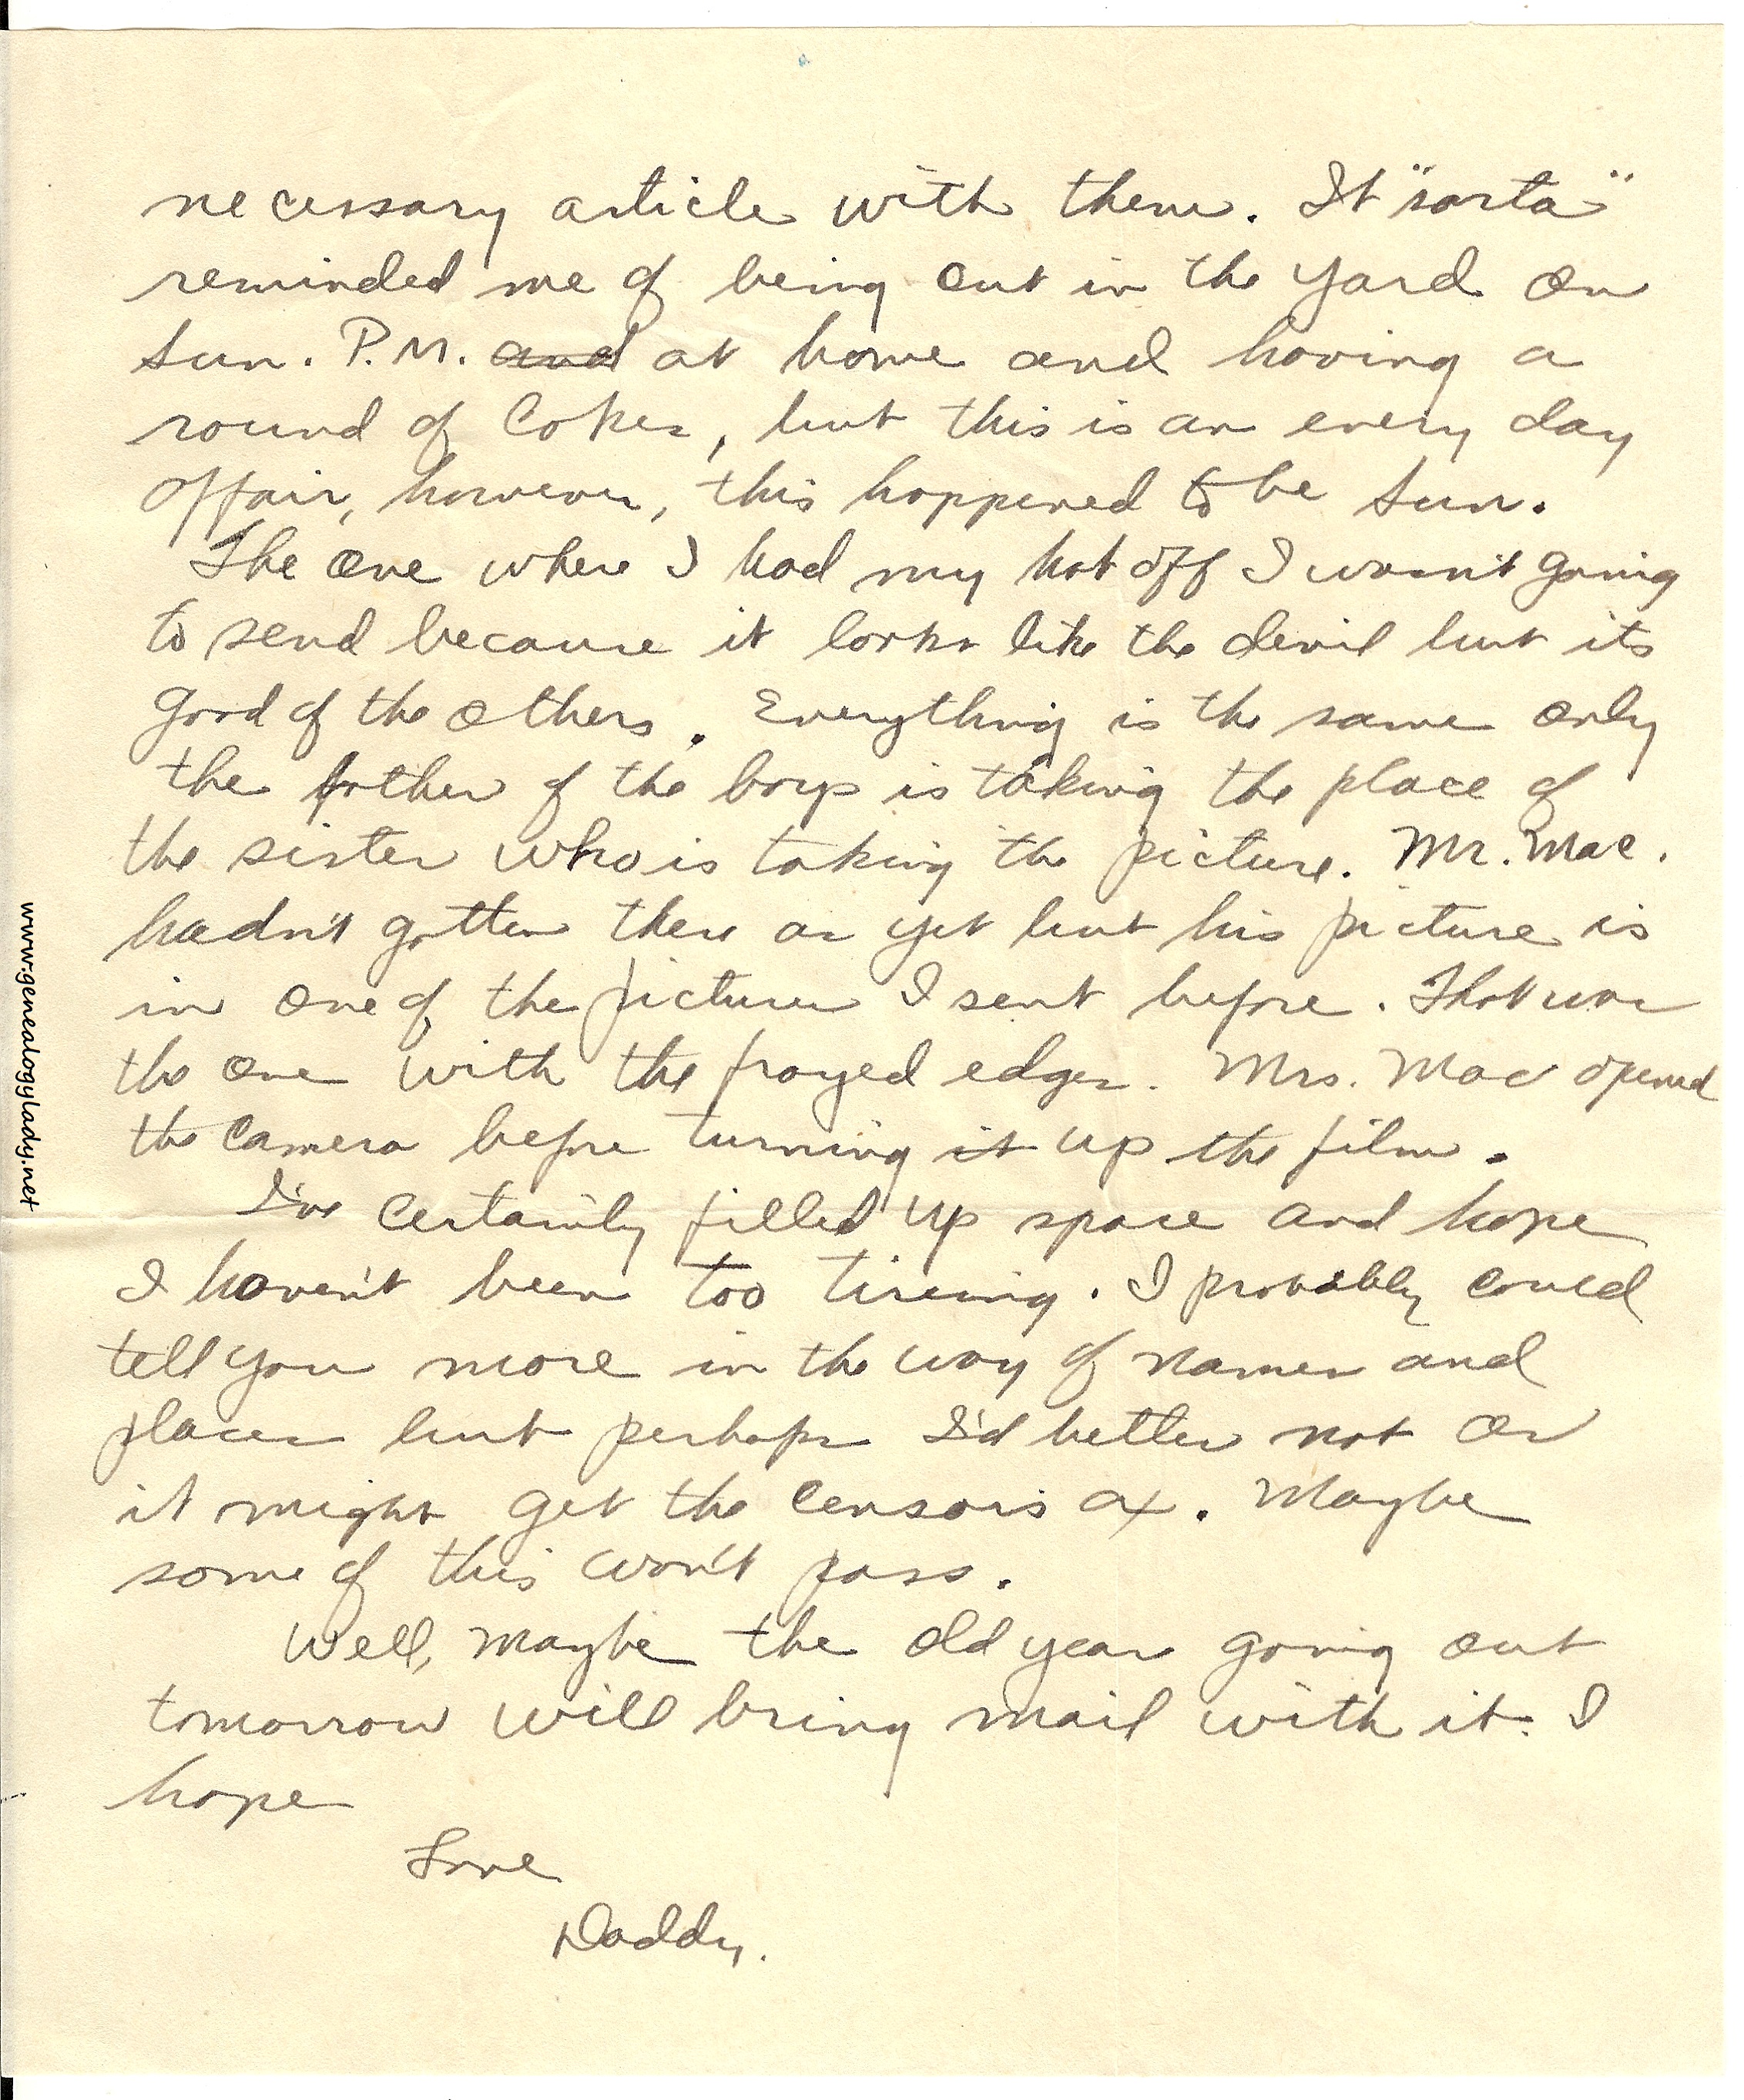 necessary article with them. It "sorta"
reminded me of being out in the yard on
Sun. P.M. and at home and having a
round of Cokes, but this is an every day
affair, however, this happened to be Sun.
The one where I had my hat off I wasn't going
to send because it looks like the devil but its
good of the others. Everything is the same only
the father of the boys is taking the place of
the sister who is taking the picture. Mr. Mac.
hadn't gotten there as yet but his picture is
in one of the pictures I sent before. That was
the one with the frayed edges. Mrs. Mac opened
the camera before turning it up the film.
I've certainly filled up space and hope
I haven't been too tireing. I probably could
tell you more in the way of names and
places but perhaps I'd better not or
it might get the censors ax. Maybe
some of this won't pass.
Well, maybe the old year going out
tomorrow will bring mail with it. I
hope
Love
Daddy.
www.genealogylady.net